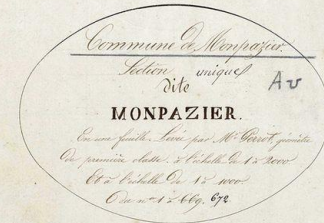 Commune de Monpazier.
Section unique
dite
Av
MONPAZIER.
En une feuille Levée par Mr Perrot, géomètre
de première classe à l'échelle de 1 à 2000
Et à l'échelle de 1 à 1000
Du n° 1 à 669. 672